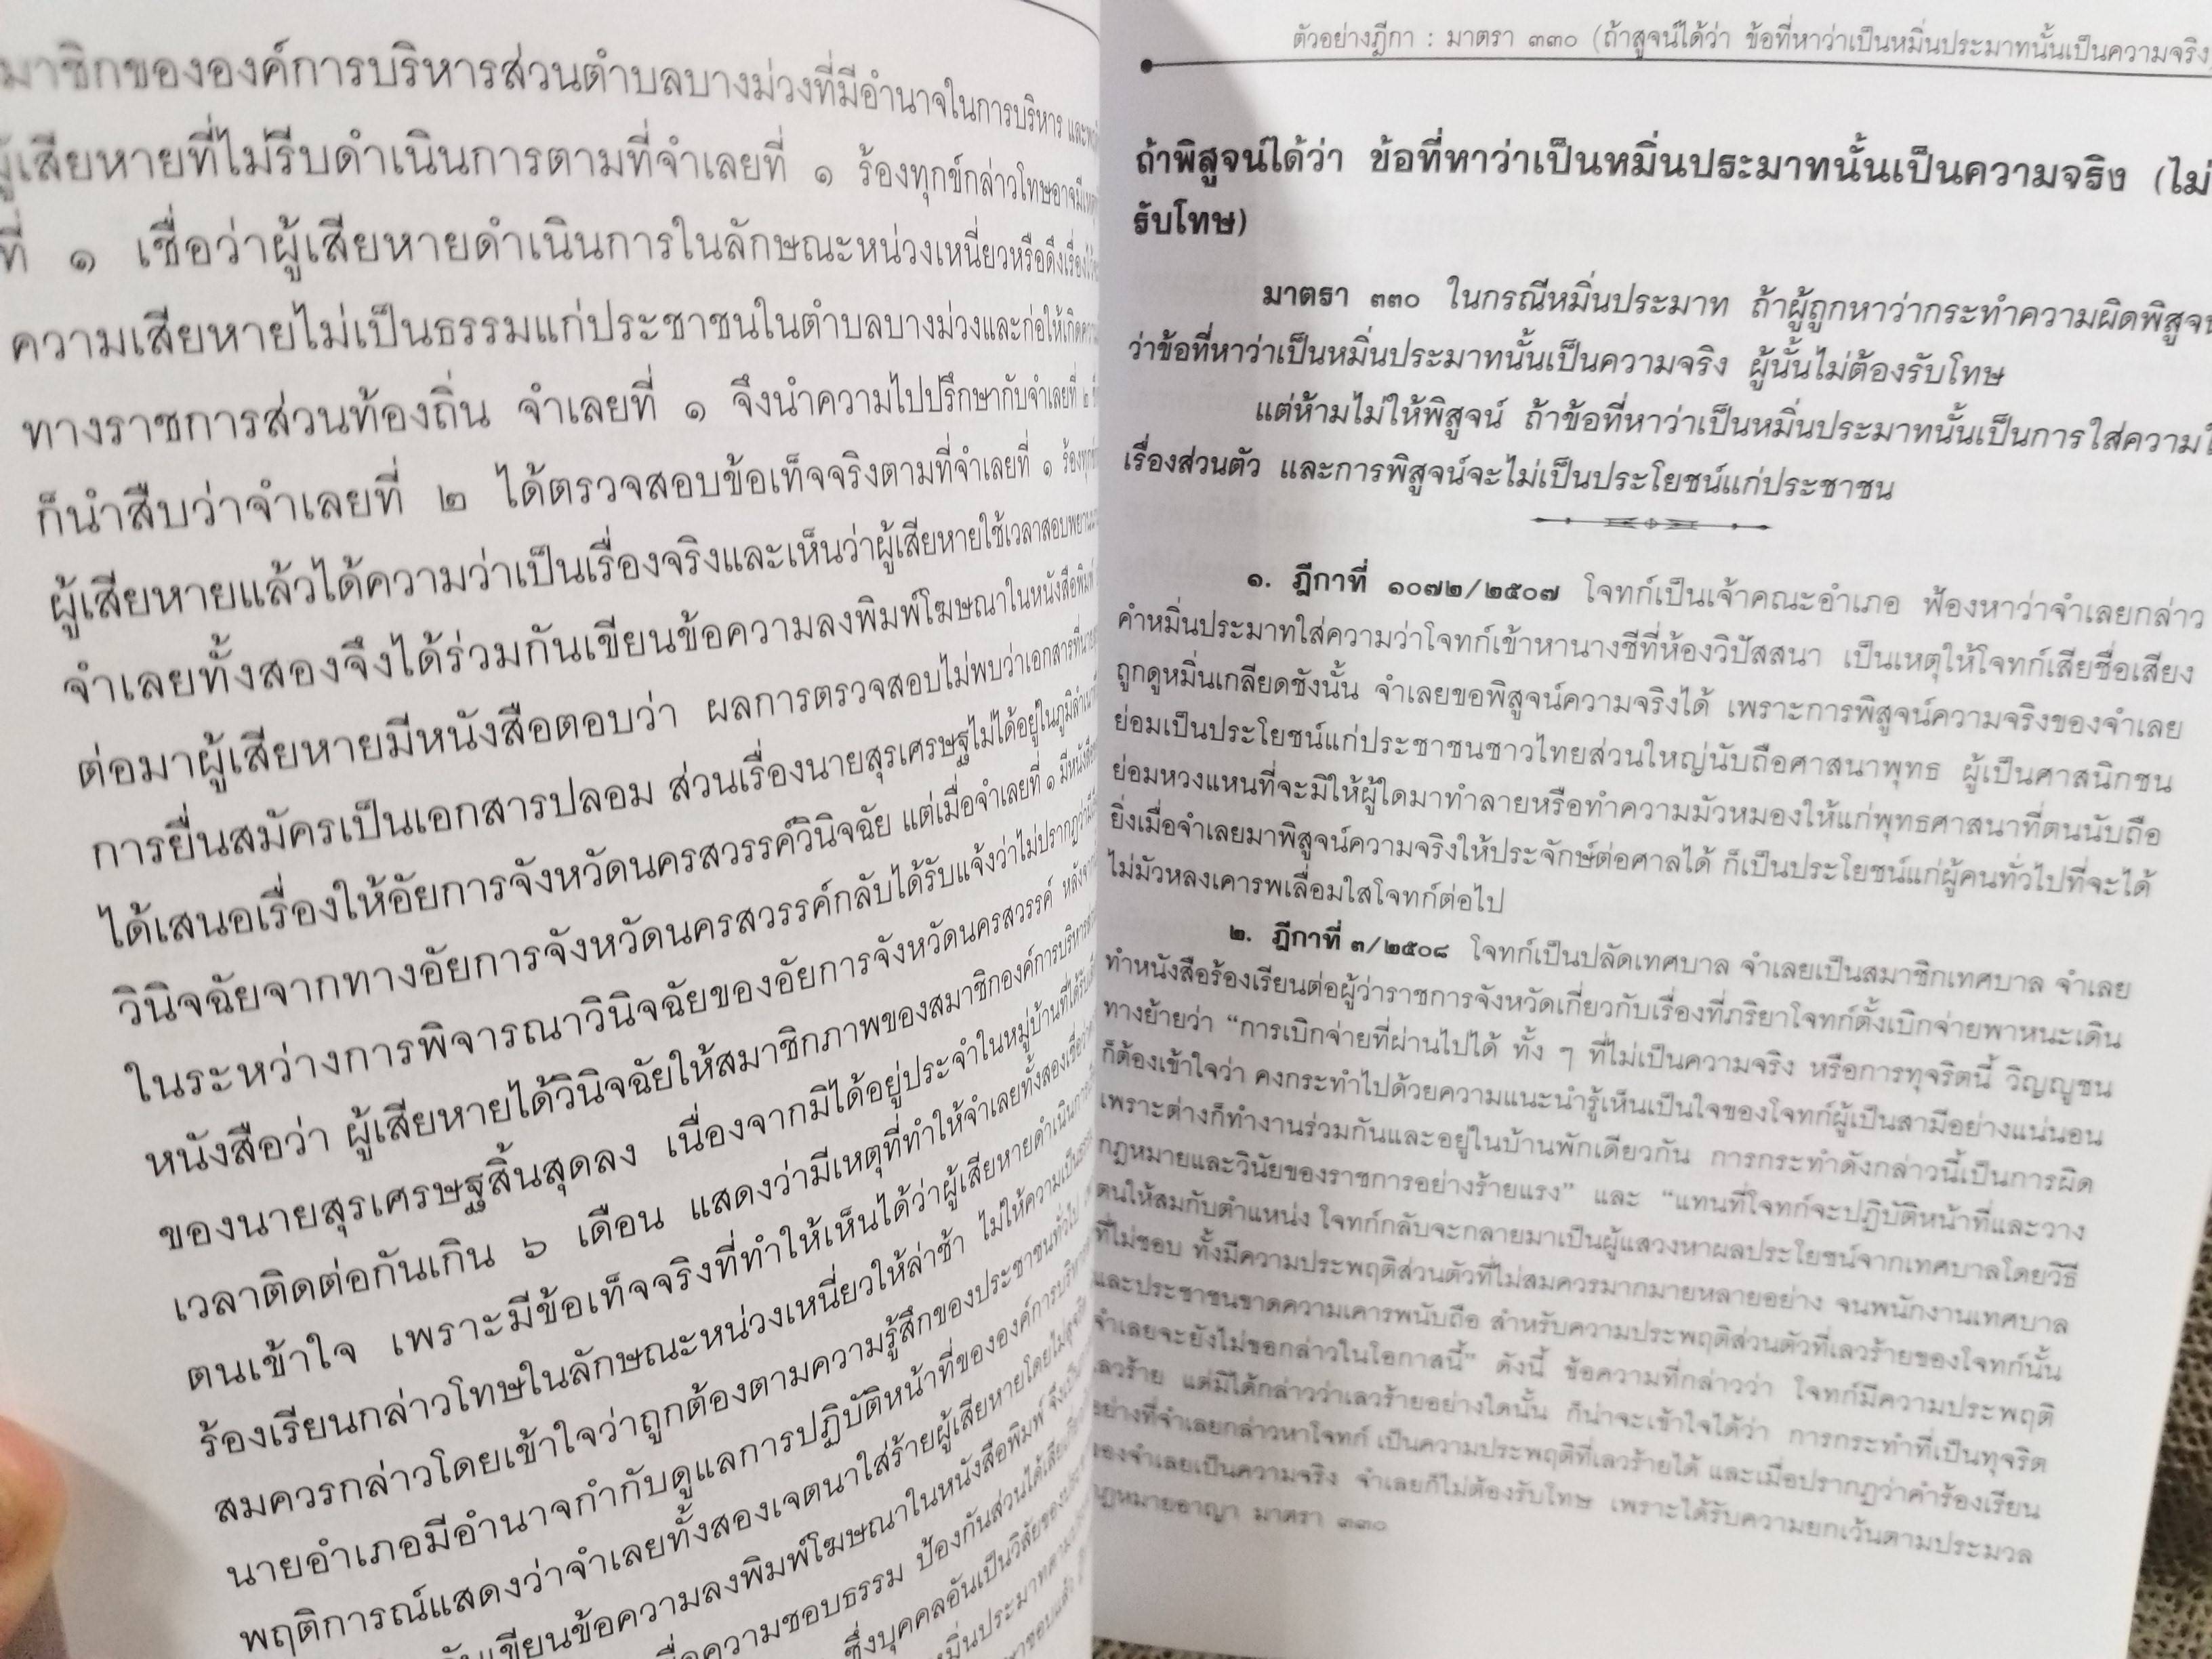 มาชิกขององค์การบริหารส่วนตำบลบางม่วงที่มีอำนาจในการบริหาร
ผู้เสียหายที่ไม่รีบดำเนินการตามที่จำเลยที่ ๑ ร้องทุกข์กล่าวโทษอาจมีเหตุ
ที่ ๑ เชื่อว่าผู้เสียหายดำเนินการในลักษณะหน่วงเหนี่ยวหรือดึงเรื่อง
ความเสียหายไม่เป็นธรรมแก่ประชาชนในตำบลบางม่วงและก่อให้เกิด
ทางราชการส่วนท้องถิ่น จำเลยที่ ๑ จึงนำความไปปรึกษากับจำเลยที่ ๒
ก็นำสืบว่าจำเลยที่ ๒ ได้ตรวจสอบข้อเท็จจริงตามที่จำเลยที่ ๑
ผู้เสียหายแล้วได้ความว่าเป็นเรื่องจริงและเห็นว่าผู้เสียหายใช้เวลาสอบพยาน
จำเลยทั้งสองจึงได้ร่วมกันเขียนข้อความลงพิมพ์โฆษณาในหนังสือพิมพ์
ต่อมาผู้เสียหายมีหนังสือตอบว่า ผลการตรวจสอบไม่พบว่าเอกสารที่
การยื่นสมัครเป็นเอกสารปลอม ส่วนเรื่องนายสุรเศรษฐไม่ได้อยู่ในภูมิลำเนา
ได้เสนอเรื่องให้อัยการจังหวัดนครสวรรค์วินิจฉัย แต่เมื่อจำเลยที่ ๑ มีหนังสือ
วินิจฉัยจากทางอัยการจังหวัดนครสวรรค์กลับได้รับแจ้งว่าไม่ปรากฏว่า
ในระหว่างการพิจารณาวินิจฉัยของอัยการจังหวัดนครสวรรค์ หลังจาก
หนังสือว่า ผู้เสียหายได้วินิจฉัยให้สมาชิกภาพของสมาชิกองค์การบริหาร
ของนายสุรเศรษฐสิ้นสุดลง เนื่องจากมิได้อยู่ประจำในหมู่บ้านที่ได้รับ
เวลาติดต่อกันเกิน ๖ เดือน แสดงว่ามีเหตุที่ทำให้จำเลยทั้งสองเชื่อว่า
ตนเข้าใจ เพราะมีข้อเท็จจริงที่ทำให้เห็นได้ว่าผู้เสียหายดำเนินการ
ร้องเรียนกล่าวโทษในลักษณะหน่วงเหนี่ยวให้ล่าช้า ไม่ให้ความเป็นธรรม
สมควรกล่าวโดยเข้าใจว่าถูกต้องตามความรู้สึกของประชาชนทั่วไป
นายอำเภอมีอำนาจกำกับดูแลการปฏิบัติหน้าที่ขององค์การบริหาร
พฤติการณ์แสดงว่าจำเลยทั้งสองเจตนาใส่ร้ายผู้เสียหายโดยไม่สุจริต
เขียนข้อความลงพิมพ์โฆษณาในหนังสือพิมพ์ จึงเป็น
ความชอบธรรม ป้องกันส่วนได้เสีย
ซึ่งบุคคลอันเป็นวิสัยของ
หมิ่นประมาทตาม
ตัวอย่างฎีกา : มาตรา ๓๓๐ (ถ้าสูจน์ได้ว่า ข้อที่หาว่าเป็นหมิ่นประมาทนั้นเป็นความจริง)
ถ้าพิสูจน์ได้ว่า ข้อที่หาว่าเป็นหมิ่นประมาทนั้นเป็นความจริง (ไม่
รับโทษ)
มาตรา ๓๓๐ ในกรณีหมิ่นประมาท ถ้าผู้ถูกหาว่ากระทำความผิดพิสูจน์
ว่าข้อที่หาว่าเป็นหมิ่นประมาทนั้นเป็นความจริง ผู้นั้นไม่ต้องรับโทษ
แต่ห้ามไม่ให้พิสูจน์ ถ้าข้อที่หาว่าเป็นหมิ่นประมาทนั้นเป็นการใส่ความ
เรื่องส่วนตัว และการพิสูจน์จะไม่เป็นประโยชน์แก่ประชาชน
๑. ฎีกาที่ ๑๐๗๒/๒๕๐๗ โจทก์เป็นเจ้าคณะอำเภอ ฟ้องหาว่าจำเลยกล่าว
คำหมิ่นประมาทใส่ความว่าโจทก์เข้าหานางชีที่ห้องวิปัสสนา เป็นเหตุให้โจทก์เสียชื่อเสียง
ถูกดูหมิ่นเกลียดชังนั้น จำเลยขอพิสูจน์ความจริงได้ เพราะการพิสูจน์ความจริงของจำเลย
ย่อมเป็นประโยชน์แก่ประชาชนชาวไทยส่วนใหญ่นับถือศาสนาพุทธ ผู้เป็นศาสนิกชน
ย่อมหวงแหนที่จะมิให้ผู้ใดมาทำลายหรือทำความมัวหมองให้แก่พุทธศาสนาที่ตนนับถือ
ยิ่งเมื่อจำเลยมาพิสูจน์ความจริงให้ประจักษ์ต่อศาลได้ ก็เป็นประโยชน์แก่ผู้คนทั่วไปที่จะได้
ไม่มัวหลงเคารพเลื่อมใสโจทก์ต่อไป
๒. ฎีกาที่ ๓/๒๕๐๘ โจทก์เป็นปลัดเทศบาล จำเลยเป็นสมาชิกเทศบาล จำเลย
ทำหนังสือร้องเรียนต่อผู้ว่าราชการจังหวัดเกี่ยวกับเรื่องที่ภริยาโจทก์ตั้งเบิกจ่ายพาหนะเดิน
ทางย้ายว่า “การเบิกจ่ายที่ผ่านไปได้ ทั้ง ๆ ที่ไม่เป็นความจริง หรือการทุจริตนี้ วิญญูชน
ก็ต้องเข้าใจว่า คงกระทำไปด้วยความแนะนำรู้เห็นเป็นใจของโจทก์ผู้เป็นสามีอย่างแน่นอน
เพราะต่างก็ทำงานร่วมกันและอยู่ในบ้านพักเดียวกัน การกระทำดังกล่าวนี้เป็นการผิด
กฎหมายและวินัยของราชการอย่างร้ายแรง” และ “แทนที่โจทก์จะปฏิบัติหน้าที่และวาง
ตนให้สมกับตำแหน่ง โจทก์กลับจะกลายมาเป็นผู้แสวงหาผลประโยชน์จากเทศบาลโดยวิธี
ที่ไม่ชอบ ทั้งมีความประพฤติส่วนตัวที่ไม่สมควรมากมายหลายอย่าง จนพนักงานเทศบาล
และประชาชนขาดความเคารพนับถือ สำหรับความประพฤติส่วนตัวที่เลวร้ายของโจทก์นั้น
จำเลยจะยังไม่ขอกล่าวในโอกาสนี้” ดังนี้ ข้อความที่กล่าวว่า โจทก์มีความประพฤติ
เลวร้าย แต่มิได้กล่าวว่าเลวร้ายอย่างใดนั้น ก็น่าจะเข้าใจได้ว่า การกระทำที่เป็นทุจริต
อย่างที่จำเลยกล่าวหาโจทก์ เป็นความประพฤติที่เลวร้ายได้ และเมื่อปรากฏว่าคำร้องเรียน
ของจำเลยเป็นความจริง จำเลยก็ไม่ต้องรับโทษ เพราะได้รับความยกเว้นตามประมวล
กฎหมายอาญา มาตรา ๓๓๐